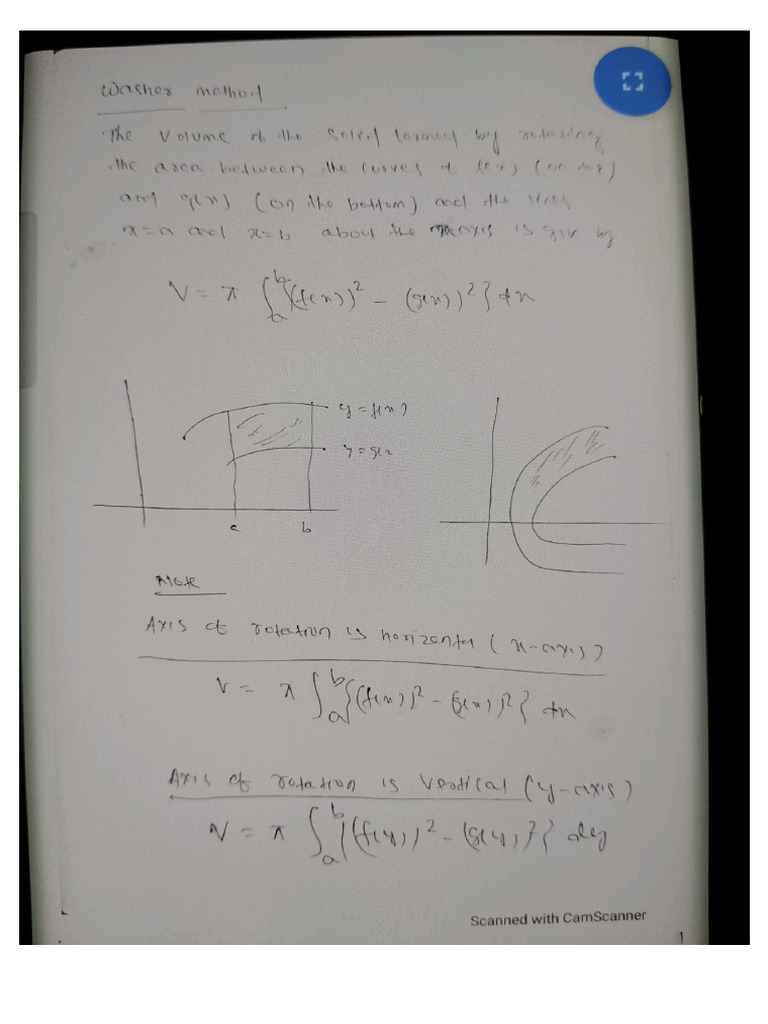 Washer method
The volume of the solid formed by rotating
the area between the curves of f(x) (on top)
and g(x) (on the bottom) and the lines
x=a and x=b about the x axis is giv by
V = π ∫_a^b {(f(x))² - (g(x))²} dx
y = f(x)
y = g(x
a b
Note
Axis of rotation is horizontal (x-axis)
V = π ∫_a^b {(f(x))² - (g(x))²} dx
Axis of rotation is vertical (y-axis)
V = π ∫_a^b {(f(y))² - (g(y))²} dy
Scanned with CamScanner
1